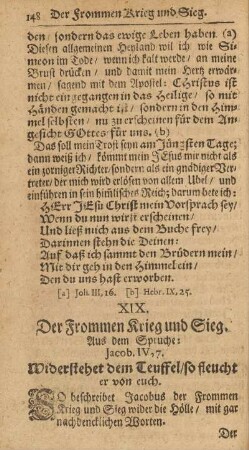 148 Der Frommen Krieg und Sieg.
den / sondern das ewige Leben haben. (a)
Diesen allgemeinen Heyland wil ich wie Si-
meon im Tode / wenn ich kalt werde / an meine
Brust drücken / und damit mein Hertz erwär-
men / sagend mit dem Apostel: Christus ist
nicht eingegangen in das Heilige / so mit
Händen gemacht ist / sondern in den Him-
mel selbsten / nu zu erscheinen für dem An-
gesicht GOttes für uns. (b)
Das soll mein Trotz seyn am Jüngsten Tage;
dann weiß ich / kömmt mein JEsus mir nicht als
ein zorniger Richter / sondern als ein gnädiger Ver-
treter / der mich wird erlösen von allem Ubel / und
einführen in sein himlisches Reich; darum bete ich:
HErr JEsu Christ mein Vorsprach sey /
Wenn du nun wirst erscheinen /
Und ließ mich aus dem Buche frey /
Darinnen stehn die Deinen:
Auf daß ich sammt den Brüdern mein /
Mit dir geh in den Himmel ein /
Den du uns hast erworben.
[a] Joh. III, 16. [b] Hebr. IX, 25.
XIX.
Der Frommen Krieg und Sieg.
Aus dem Spruche:
Jacob. IV, 7.
Widerstehet dem Teuffel / so fleucht
er von euch.
SO beschreibet Jacobus der Frommen
Krieg und Sieg wider die Hölle / mit gar
nachdencklichen Worten.
Der